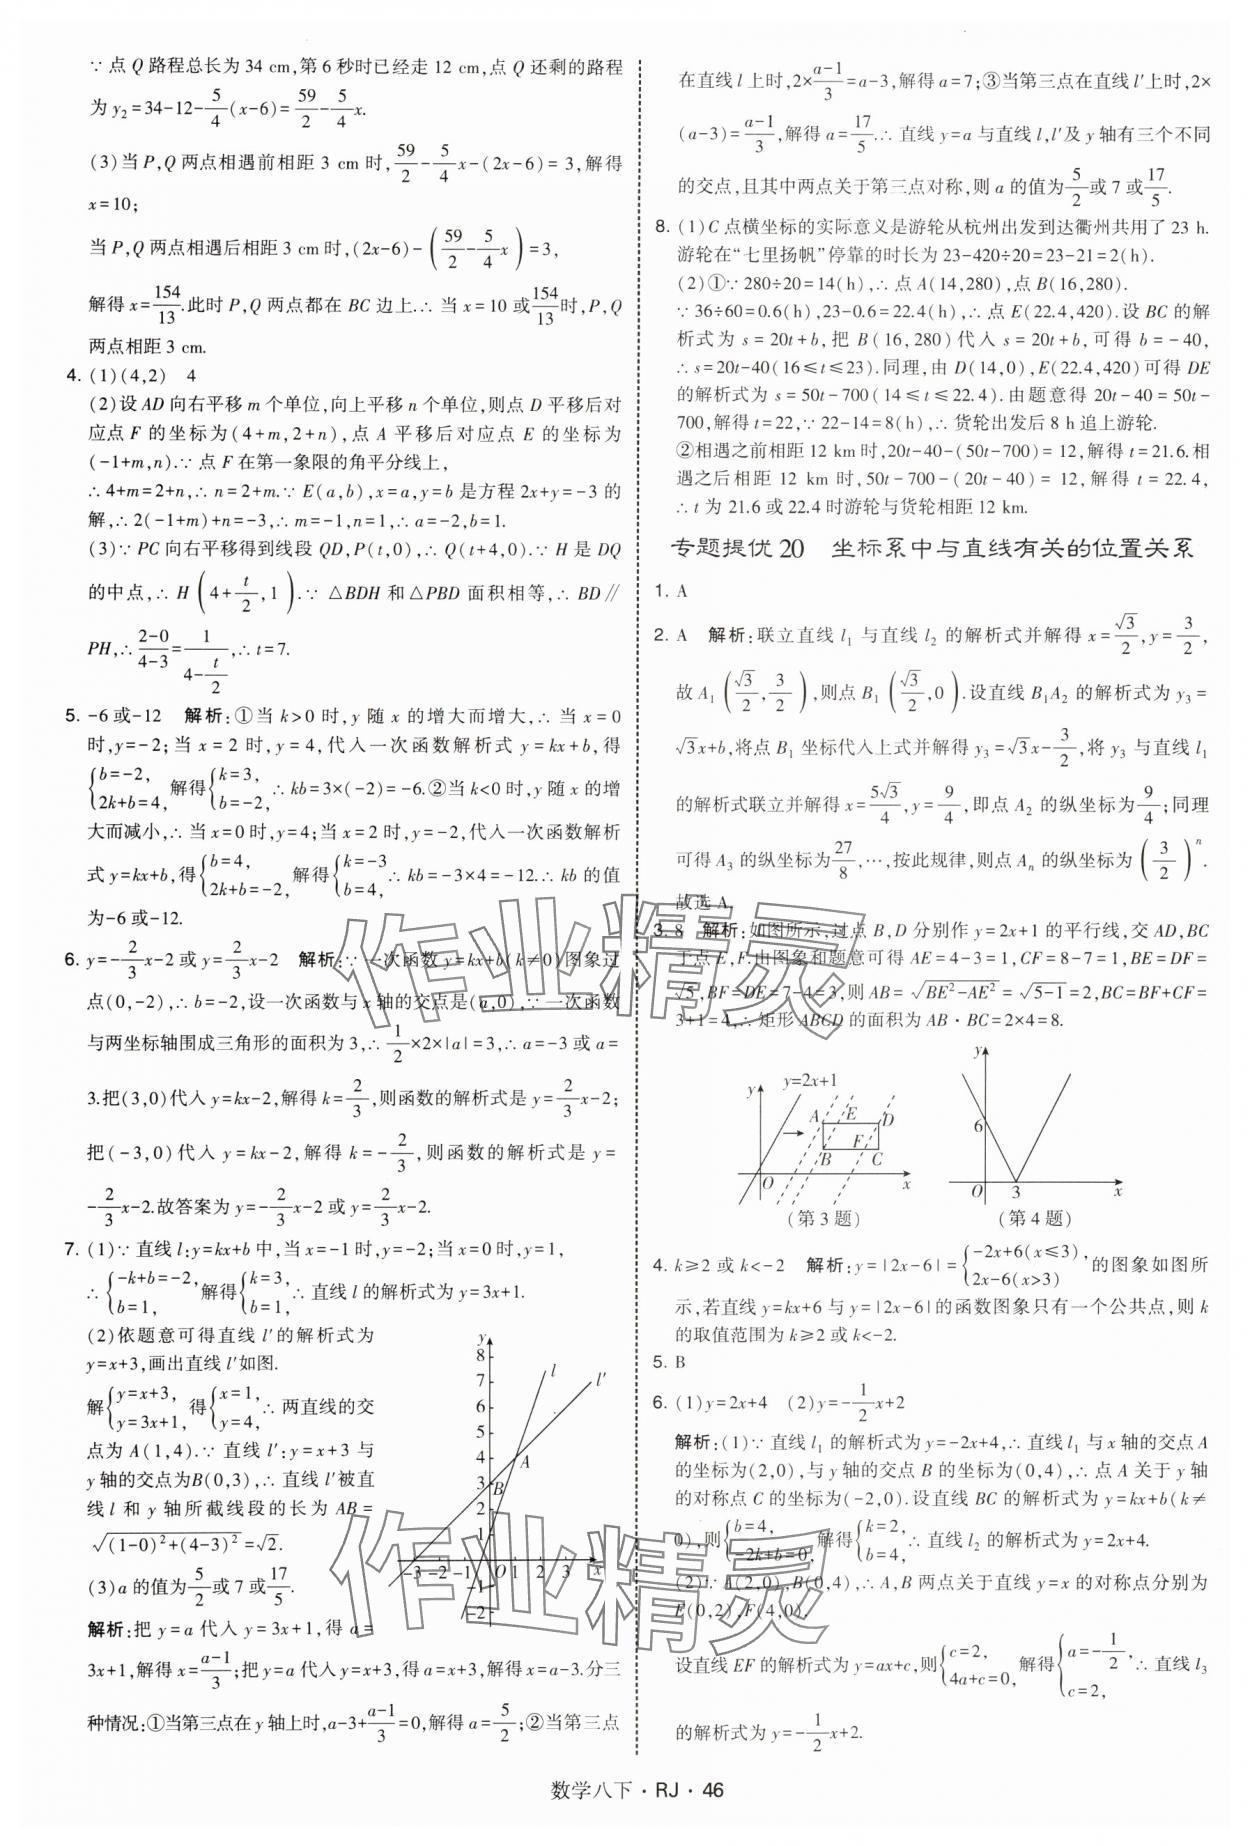 ∵ 点 Q 路程总长为 34 cm,第 6 秒时已经走 12 cm,点 Q 还剩的路程
为 y₂=34-12-5/4(x-6)=59/2-5/4x.
(3)当 P,Q 两点相遇前相距 3 cm 时,59/2-5/4x-(2x-6)=3,解得
x=10;
当 P,Q 两点相遇后相距 3 cm 时,(2x-6)-(59/2-5/4x)=3,
解得 x=154/13.此时 P,Q 两点都在 BC 边上.∴ 当 x=10 或154/13时,P,Q
两点相距 3 cm.
4. (1)(4,2) 4
(2)设 AD 向右平移 m 个单位,向上平移 n 个单位,则点 D 平移后对
应点 F 的坐标为(4+m,2+n),点 A 平移后对应点 E 的坐标为
(-1+m,n).∵ 点 F 在第一象限的角平分线上,
∴ 4+m=2+n,∴ n=2+m.∵ E(a,b),x=a,y=b 是方程 2x+y=-3 的
解,∴ 2(-1+m)+n=-3,∴ m=-1,n=1,∴ a=-2,b=1.
(3)∵ PC 向右平移得到线段 QD,P(t,0),∴ Q(t+4,0).∵ H 是 DQ
的中点,∴ H(4+t/2,1).∵ △BDH 和△PBD 面积相等,∴ BD∥
PH,∴ (2-0)/(4-3)=1/(4-t/2),∴ t=7.
5. -6 或-12 解析:①当 k>0 时,y 随 x 的增大而增大,∴ 当 x=0
时,y=-2;当 x=2 时,y=4,代入一次函数解析式 y=kx+b,得
{b=-2, 2k+b=4, 解得{k=3, b=-2, ∴ kb=3×(-2)=-6.②当 k<0 时,y 随 x 的增
大而减小,∴ 当 x=0 时,y=4;当 x=2 时,y=-2,代入一次函数解析
式 y=kx+b,得{b=4, 2k+b=-2, 解得{k=-3 b=4, ∴ kb=-3×4=-12.∴ kb 的值
为-6 或-12.
6. y=-2/3x-2 或 y=2/3x-2 解析:∵ 一次函数 y=kx+b(k≠0)图象过
点(0,-2),∴ b=-2,设一次函数与 x 轴的交点是(a,0),∵ 一次函数
与两坐标轴围成三角形的面积为 3,∴ 1/2×2×|a|=3,∴ a=-3 或 a=
3.把(3,0)代入 y=kx-2,解得 k=2/3,则函数的解析式是 y=2/3x-2;
把(-3,0)代入 y=kx-2,解得 k=-2/3,则函数的解析式是 y=
-2/3x-2.故答案为 y=-2/3x-2 或 y=2/3x-2.
7. (1)∵ 直线 l:y=kx+b 中,当 x=-1 时,y=-2;当 x=0 时,y=1,
∴ {-k+b=-2, b=1, 解得{k=3, b=1, ∴ 直线 l 的解析式为 y=3x+1.
(2)依题意可得直线 l′的解析式为
y=x+3,画出直线 l′如图.
解{y=x+3, y=3x+1, 得{x=1, y=4, ∴ 两直线的交
点为 A(1,4).∵ 直线 l′:y=x+3 与
y 轴的交点为B(0,3),∴ 直线 l′被直
线 l 和 y 轴所截线段的长为 AB=
√((1-0)²+(4-3)²)=√2.
(3)a 的值为5/2或 7 或17/5.
解析:把 y=a 代入 y=3x+1,得 a=
3x+1,解得 x=(a-1)/3;把 y=a 代入 y=x+3,得 a=x+3,解得 x=a-3.分三
种情况:①当第三点在 y 轴上时,a-3+(a-1)/3=0,解得 a=5/2;②当第三点
y
8
7
6
5
4
3
2
1
-1
-2
-3 -2 -1 O 1 2 3 x
l
l′
A
B
在直线 l 上时,2×(a-1)/3=a-3,解得 a=7;③当第三点在直线 l′上时,2×
(a-3)=(a-1)/3,解得 a=17/5.∴ 直线 y=a 与直线 l,l′及 y 轴有三个不同
的交点,且其中两点关于第三点对称,则 a 的值为5/2或 7 或17/5.
8. (1)C 点横坐标的实际意义是游轮从杭州出发到达衢州共用了 23 h.
游轮在“七里扬帆”停靠的时长为 23-420÷20=23-21=2(h).
(2)①∵ 280÷20=14(h),∴ 点 A(14,280),点 B(16,280).
∵ 36÷60=0.6(h),23-0.6=22.4(h),∴ 点 E(22.4,420).设 BC 的解
析式为 s=20t+b,把 B(16,280)代入 s=20t+b,可得 b=-40,
∴ s=20t-40(16≤t≤23).同理,由 D(14,0),E(22.4,420)可得 DE
的解析式为 s=50t-700(14≤t≤22.4).由题意得 20t-40=50t-
700,解得 t=22,∵ 22-14=8(h),∴ 货轮出发后 8 h 追上游轮.
②相遇之前相距 12 km 时,20t-40-(50t-700)=12,解得 t=21.6.相
遇之后相距 12 km 时,50t-700-(20t-40)=12,解得 t=22.4,
∴ t 为 21.6 或 22.4 时游轮与货轮相距 12 km.
专题提优 20 坐标系中与直线有关的位置关系
1. A
2. A 解析:联立直线 l₁ 与直线 l₂ 的解析式并解得 x=√3/2,y=3/2,
故 A₁(√3/2,3/2),则点 B₁(√3/2,0).设直线 B₁A₂ 的解析式为 y₃=
√3x+b,将点 B₁ 坐标代入上式并解得 y₃=√3x-3/2,将 y₃ 与直线 l₁
的解析式联立并解得 x=5√3/4,y=9/4,即点 A₂ 的纵坐标为9/4;同理
可得 A₃ 的纵坐标为27/8,…,按此规律,则点 Aₙ 的纵坐标为(3/2)ⁿ.
故选 A.
3. 8 解析:如图所示,过点 B,D 分别作 y=2x+1 的平行线,交 AD,BC
于点 E,F.由图象和题意可得 AE=4-3=1,CF=8-7=1,BE=DF=
√5,BF=DE=7-4=3,则 AB=√(BE²-AE²)=√(5-1)=2,BC=BF+CF=
3+1=4,∴ 矩形 ABCD 的面积为 AB·BC=2×4=8.
y
y=2x+1
A E D
F
B C
O x
(第 3 题)
y
6
O 3 x
(第 4 题)
4. k≥2 或 k<-2 解析:y=|2x-6|={-2x+6(x≤3), 2x-6(x>3) 的图象如图所
示,若直线 y=kx+6 与 y=|2x-6|的函数图象只有一个公共点,则 k
的取值范围为 k≥2 或 k<-2.
5. B
6. (1)y=2x+4 (2)y=-1/2x+2
解析:(1)∵ 直线 l₁ 的解析式为 y=-2x+4,∴ 直线 l₁ 与 x 轴的交点 A
的坐标为(2,0),与 y 轴的交点 B 的坐标为(0,4),∴ 点 A 关于 y 轴
的对称点 C 的坐标为(-2,0).设直线 BC 的解析式为 y=kx+b(k≠
0),则{b=4, -2k+b=0, 解得{k=2, b=4, ∴ 直线 l₂ 的解析式为 y=2x+4.
(2)∵ A(2,0),B(0,4),∴ A,B 两点关于直线 y=x 的对称点分别为
E(0,2),F(4,0).
设直线 EF 的解析式为 y=ax+c,则{c=2, 4a+c=0, 解得{a=-1/2, c=2, ∴ 直线 l₃
的解析式为 y=-1/2x+2.
作业精灵
作业精灵
数学八下·RJ·46